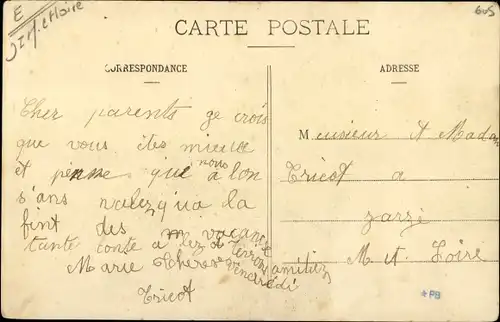 E
605
CARTE POSTALE
CORRESPONDANCE
ADRESSE
Cher parents ge crois
que vous êtes mieux
et penne que nous a lon
s'ans n'alez qua la
fint des vacance
tante conte a lez a
Marie Thérèse vencredi amiliez
Tricot
Meusieur et Madam
Tricot a
zarzé
M et Loire
*PB